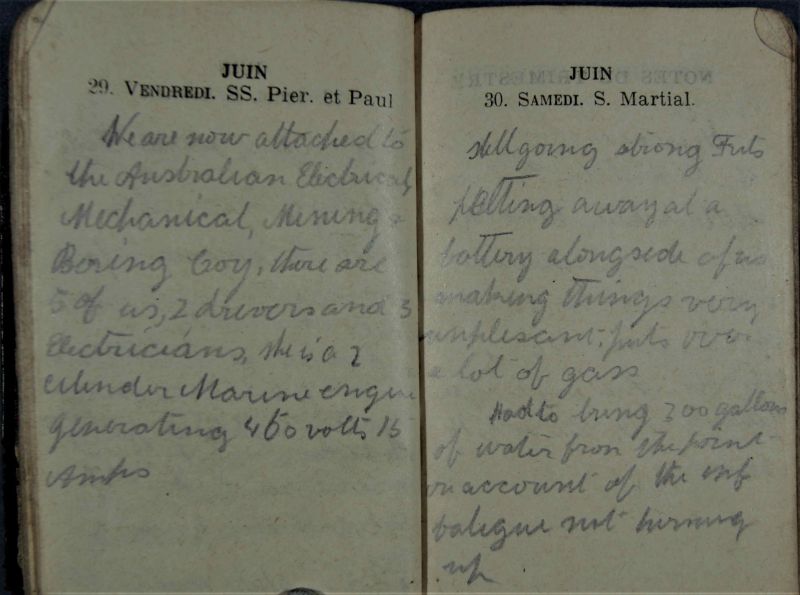 JUIN
29. VENDREDI. SS. Pier. et Paul
We are now attached to
the Australian Electrical,
Mechanical, Mining &
Boring Coy, there are
5 of us, 2 drivers and 3
Electricians, she is a 2
cilender Marine engine
generating 460 volts 15
Amps
JUIN
30. SAMEDI. S. Martial.
still going strong Frits
pelting away at a
battery alongside of us
making things very
unplesant: puts over
a lot of gass
Had to bring 200 gallons
of water from the point
on account of the inf
fatigue not turning
up